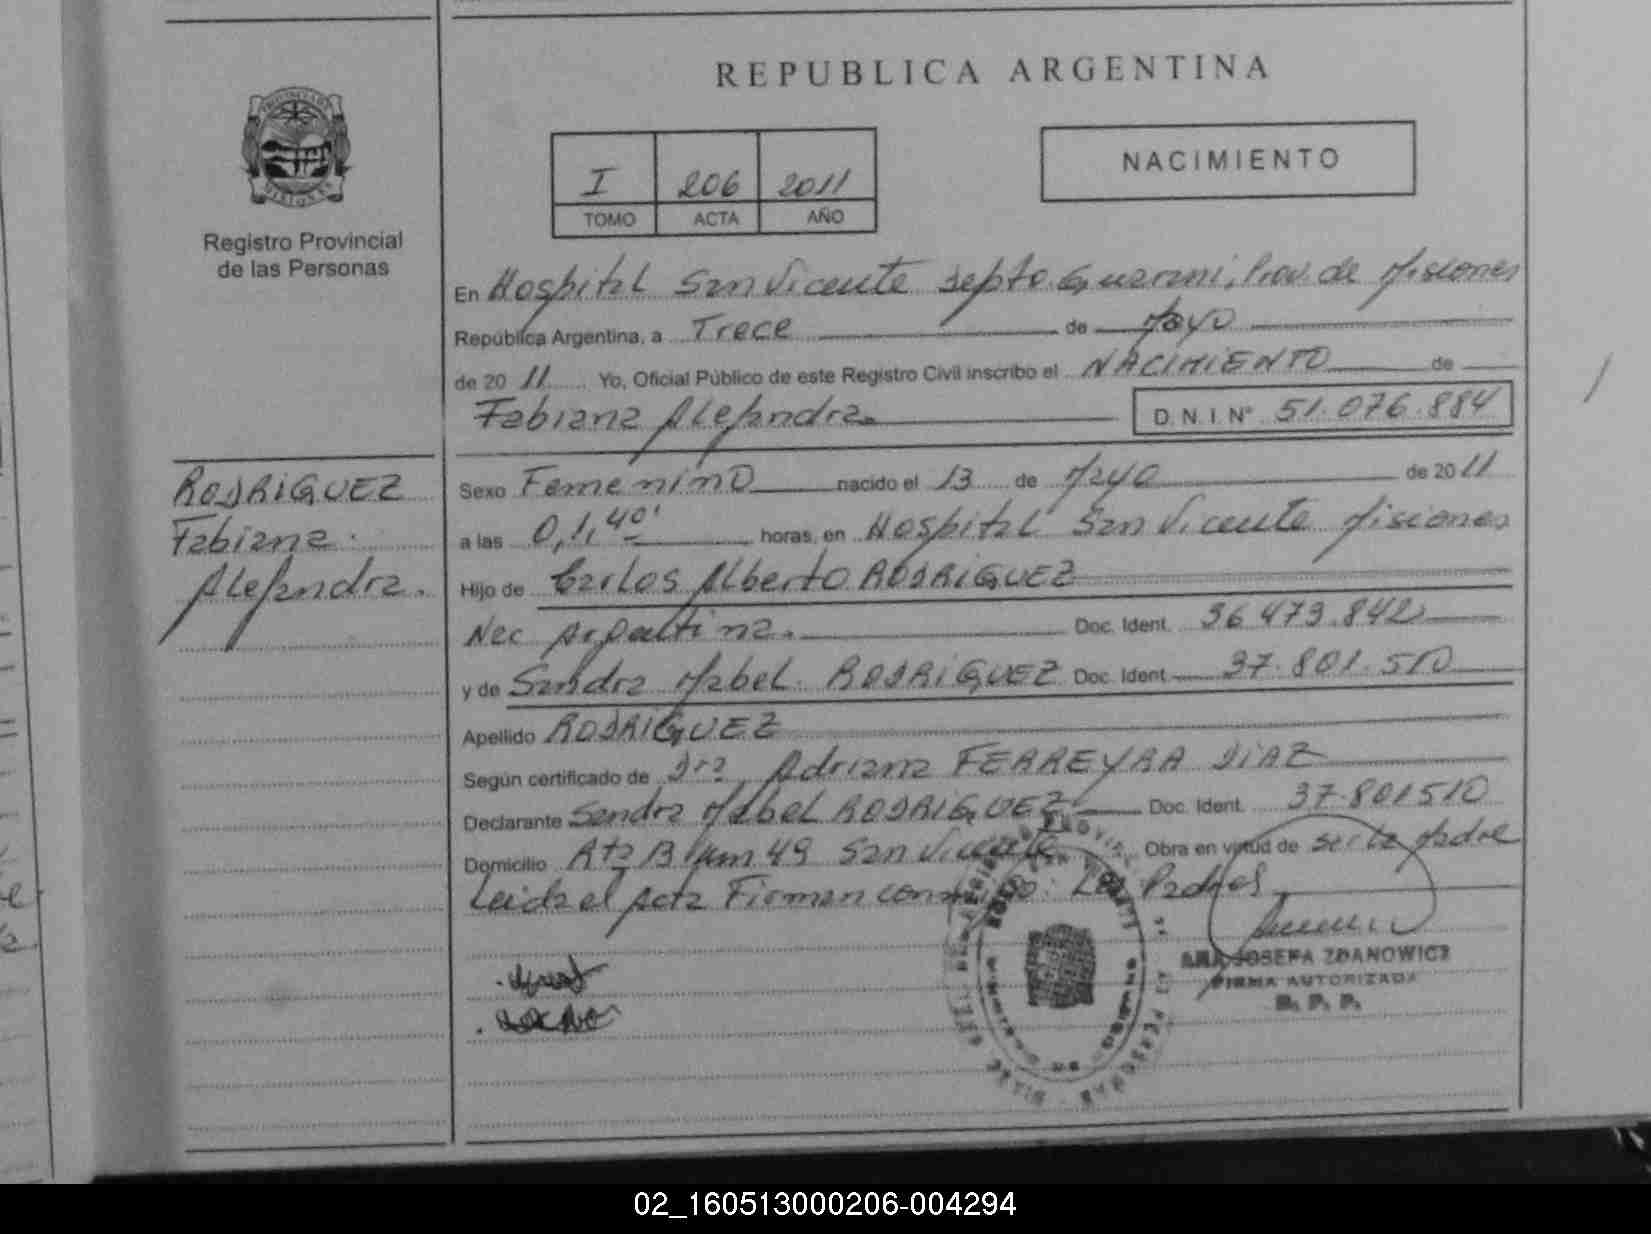 REPUBLICA ARGENTINA
NACIMIENTO
I 206 2011
TOMO ACTA AÑO
PROVINCIA DE
MISIONES
Registro Provincial
de las Personas
En Hospital San Vicente Depto. Guarani, Prov. de Misiones
República Argentina, a Trece de Mayo
de 20 11 Yo, Oficial Público de este Registro Civil inscribo el NACIMIENTO de
Fabiana Alejandra
D. N. I. N° 51.076.884
RODRIGUEZ
Fabiana
Alejandra.
Sexo Femenino nacido el 13 de Mayo de 20 11
a las 0,1,40' horas, en Hospital San Vicente Misiones
Hijo de Carlos Alberto RODRIGUEZ
Nac Argentina. Doc. Ident. 36.473.842
y de Sandra Mabel. RODRIGUEZ Doc. Ident. 37.801.510
Apellido RODRIGUEZ
Según certificado de Dra. Adriana FERREYRA DIAZ
Declarante Sandra Mabel RODRIGUEZ Doc. Ident. 37.801510
Domicilio Km 49 San Vicente Obra en virtud de ser la Madre
Leida el Acta Firman conmigo: Los Padres
ANA JOSEFA ZDANOWICZ
FIRMA AUTORIZADA
R. P. P.
02_160513000206-004294